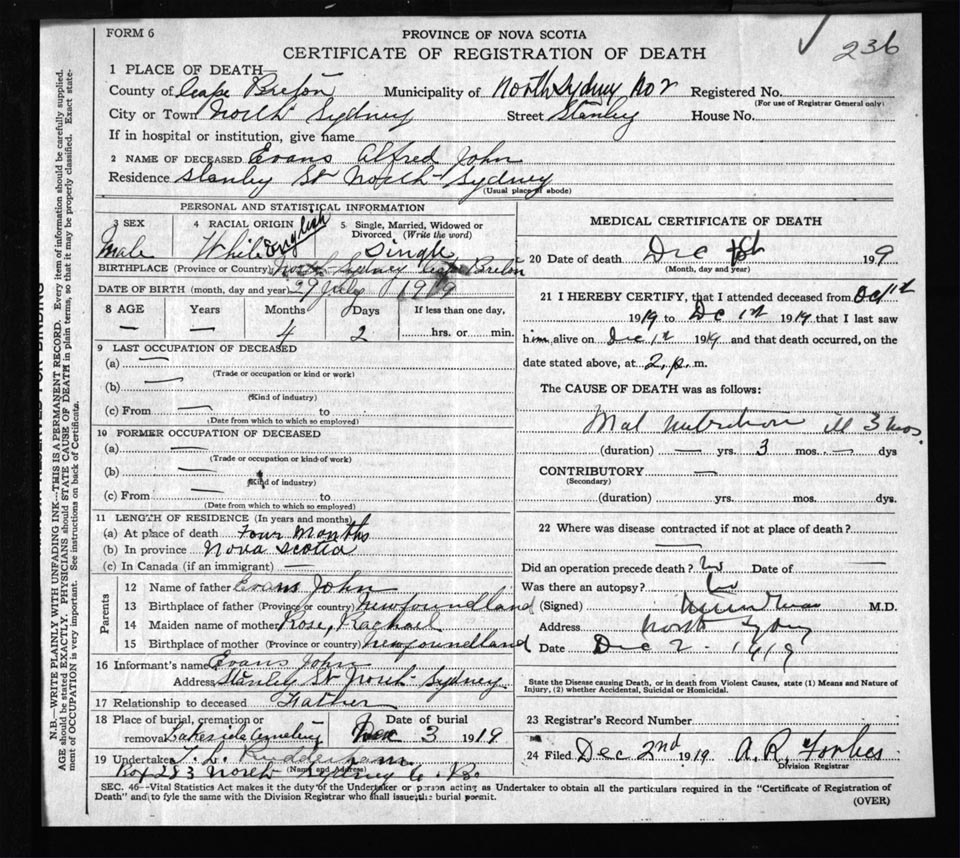 FORM 6
PROVINCE OF NOVA SCOTIA
CERTIFICATE OF REGISTRATION OF DEATH
236
1 PLACE OF DEATH—
County of Cape Breton Municipality of North Sydney No 2 Registered No.
(For use of Registrar General only)
City or Town North Sydney Street Stanley House No.
If in hospital or institution, give name
2 NAME OF DECEASED Evans Alfred John
Residence Stanley St North Sydney
(Usual place of abode)
PERSONAL AND STATISTICAL INFORMATION
3 SEX 4 RACIAL ORIGIN 5 Single, Married, Widowed or Divorced (Write the word)
Male White English Single
BIRTHPLACE (Province or Country) North Sydney Cape Breton
DATE OF BIRTH (month, day and year) 29 July 1919
8 AGE Years Months Days If less than one day,
— — 4 2 hrs. or min.
9 LAST OCCUPATION OF DECEASED
(a) —
(Trade or occupation or kind or work)
(b) —
(Kind of industry)
(c) From — to
(Date from which to which so employed)
10 FORMER OCCUPATION OF DECEASED
(a) —
(Trade or occupation or kind of work)
(b) —
(Kind of industry)
(c) From — to
(Date from which to which so employed)
11 LENGTH OF RESIDENCE (In years and months)
(a) At place of death Four Months
(b) In province Nova Scotia
(c) In Canada (if an immigrant) —
Parents
12 Name of father Evans John
13 Birthplace of father (Province or country) Newfoundland
14 Maiden name of mother Rose, Rachael
15 Birthplace of mother (Province or country) Newfoundland
16 Informant's name Evans John
Address Stanley St North Sydney
17 Relationship to deceased Father
18 Place of burial, cremation or removal Lakeside Cemetery Date of burial Dec 3 1919
19 Undertaker T. L.
(Name and Address)
Box 283 North Sydney C. B.
MEDICAL CERTIFICATE OF DEATH
20 Date of death Dec 1st 1919
(Month, day and year)
21 I HEREBY CERTIFY, that I attended deceased from Oct 11th
1919 to Dc 1st 1919 that I last saw
him alive on Dec 1st 1919 and that death occurred, on the
date stated above, at 2 p. m.
The CAUSE OF DEATH was as follows:
Mal nutrition ill 3 mos.
(duration) — yrs. 3 mos. — dys
CONTRIBUTORY —
(Secondary)
(duration) yrs. mos. dys.
22 Where was disease contracted if not at place of death?
—
Did an operation precede death? No Date of —
Was there an autopsy? No
(Signed) M.D.
Address North Sydney
Date Dec 2 - 1919
State the Disease causing Death, or in death from Violent Causes, state (1) Means and Nature of Injury, (2) whether Accidental, Suicidal or Homicidal.
23 Registrar's Record Number
24 Filed Dec 2nd 1919 A. R. Forbes
Division Registrar
SEC. 46—Vital Statistics Act makes it the duty of the Undertaker or person acting as Undertaker to obtain all the particulars required in the "Certificate of Registration of
Death" and to fyle the same with the Division Registrar who shall issue the burial permit.
(OVER)
N.B.—WRITE PLAINLY WITH UNFADING INK—THIS IS A PERMANENT RECORD. Every item of information should be carefully supplied.
AGE should be stated EXACTLY. PHYSICIANS should STATE CAUSE OF DEATH in plain terms, so that it may be properly classified. Exact state-
ment of OCCUPATION is very important. See instructions on back of Certificate.